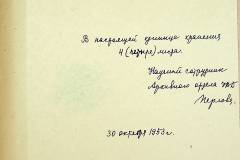 В настоящей единице хранения
4 (четыре) листа.
Научный сотрудник
Архивного отдела
30 октября 1953 г.